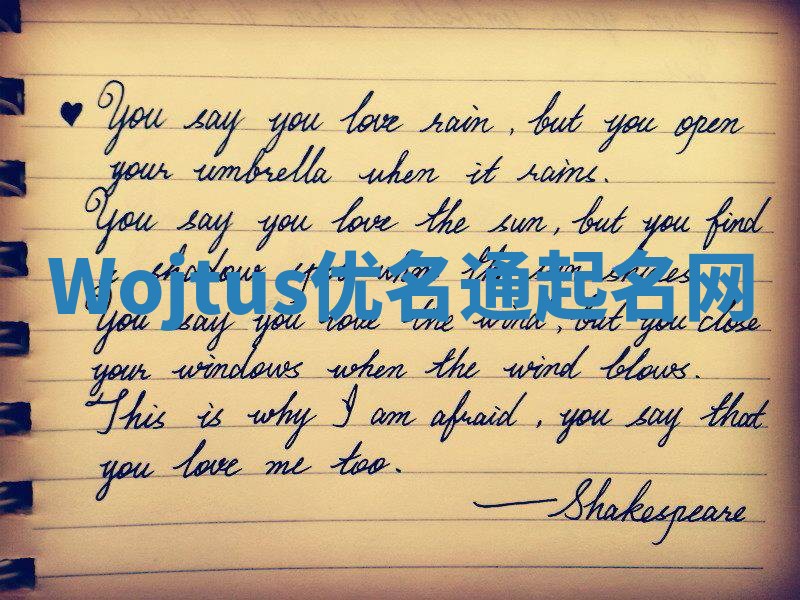 ♥ You say you love rain, but you open
your umbrella when it rains.
You say you love the sun, but you find
a shadow spot when the sun shines.
Wojtus优名通起名网
You say you love the wind, but you close
your windows when the wind blows.
This is why I am afraid, you say that
you love me too.
— Shakespeare